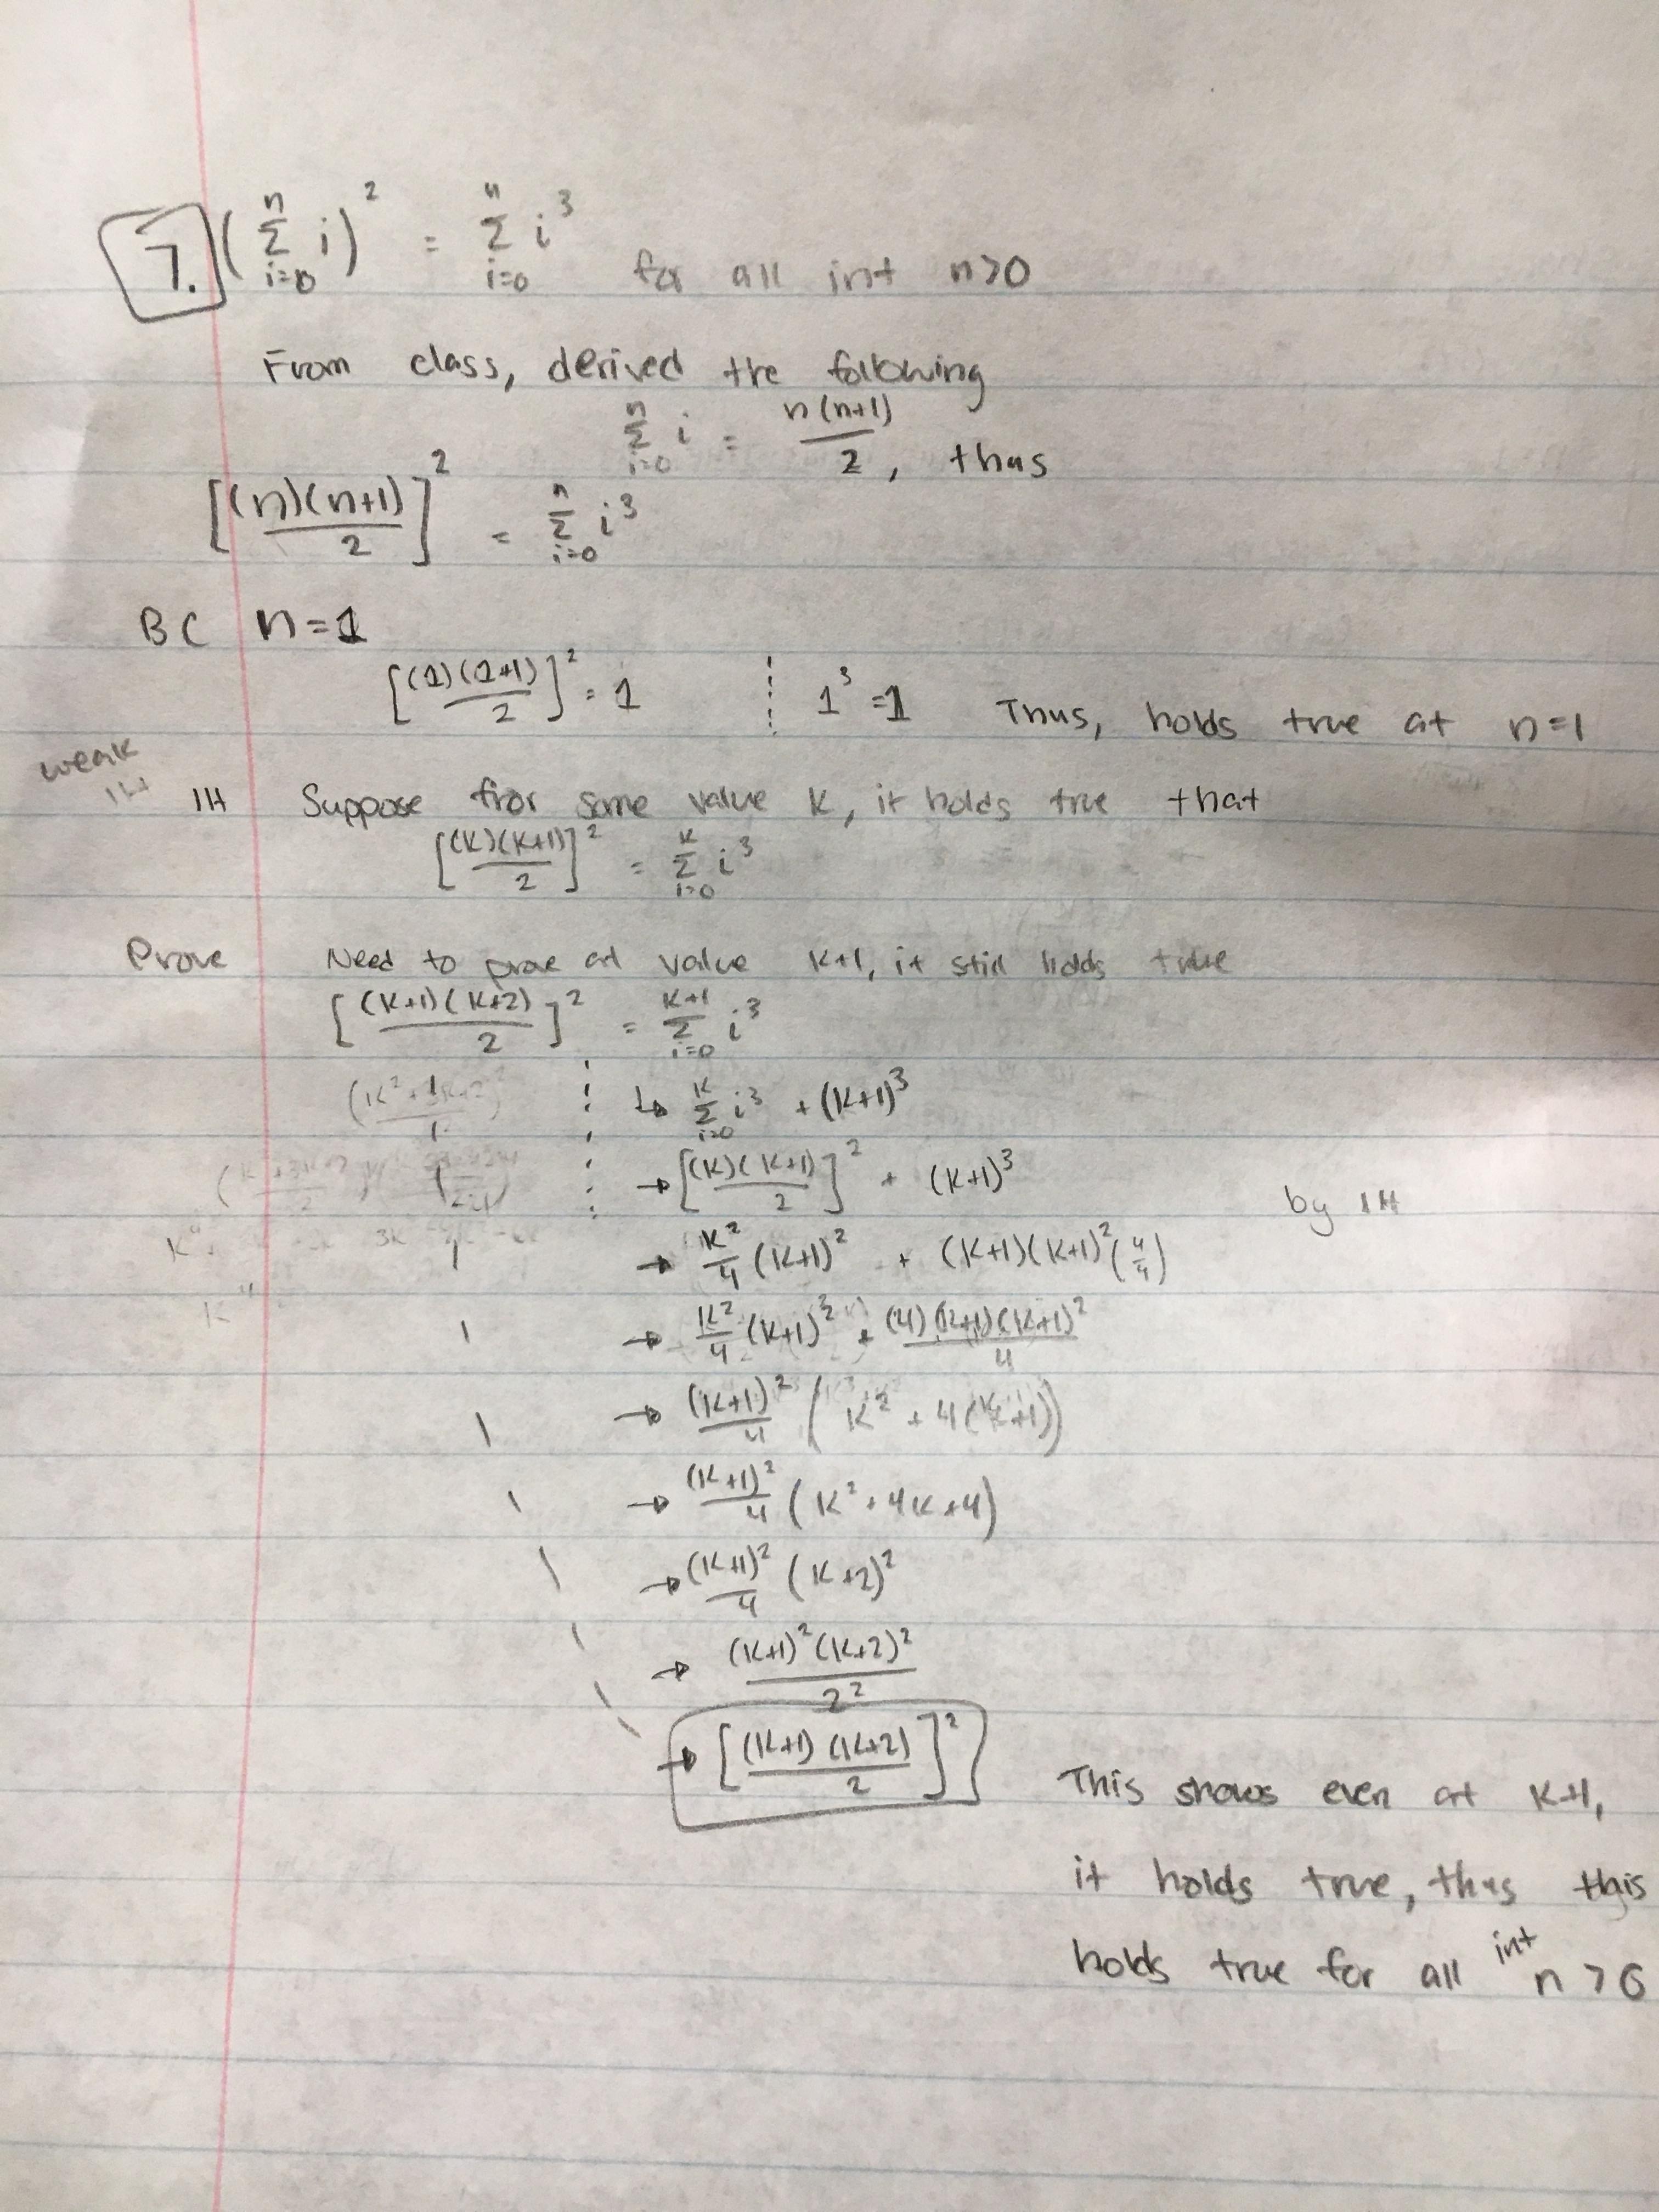 7. (Σ_{i=0}^{n} i)² = Σ_{i=0}^{n} i³ for all int n>0
From class, derived the following
Σ_{i=0}^{n} i = n(n+1)/2, thus
[(n)(n+1)/2]² = Σ_{i=0}^{n} i³
BC n=1
[(1)(1+1)/2]² = 1 ⋮ 1³ = 1 Thus, holds true at n=1
weak
IH
IH Suppose for some value k, it holds true that
[(k)(k+1)/2]² = Σ_{i=0}^{k} i³
Prove Need to prove at value k+1, it still holds true
[(k+1)(k+2)/2]² = Σ_{i=0}^{k+1} i³
↳ Σ_{i=0}^{k} i³ + (k+1)³
→ [(k)(k+1)/2]² + (k+1)³ by IH
→ k²/4 (k+1)² + (k+1)(k+1)²(4/4)
→ k²/4 (k+1)² + (4)(k+1)(k+1)²/4
→ (k+1)²/4 (k² + 4(k+1))
→ (k+1)²/4 (k² + 4k + 4)
→ (k+1)²/4 (k+2)²
→ (k+1)²(k+2)²/2²
→ [(k+1)(k+2)/2]²
This shows even at k+1,
it holds true, thus this
holds true for all int n > 0